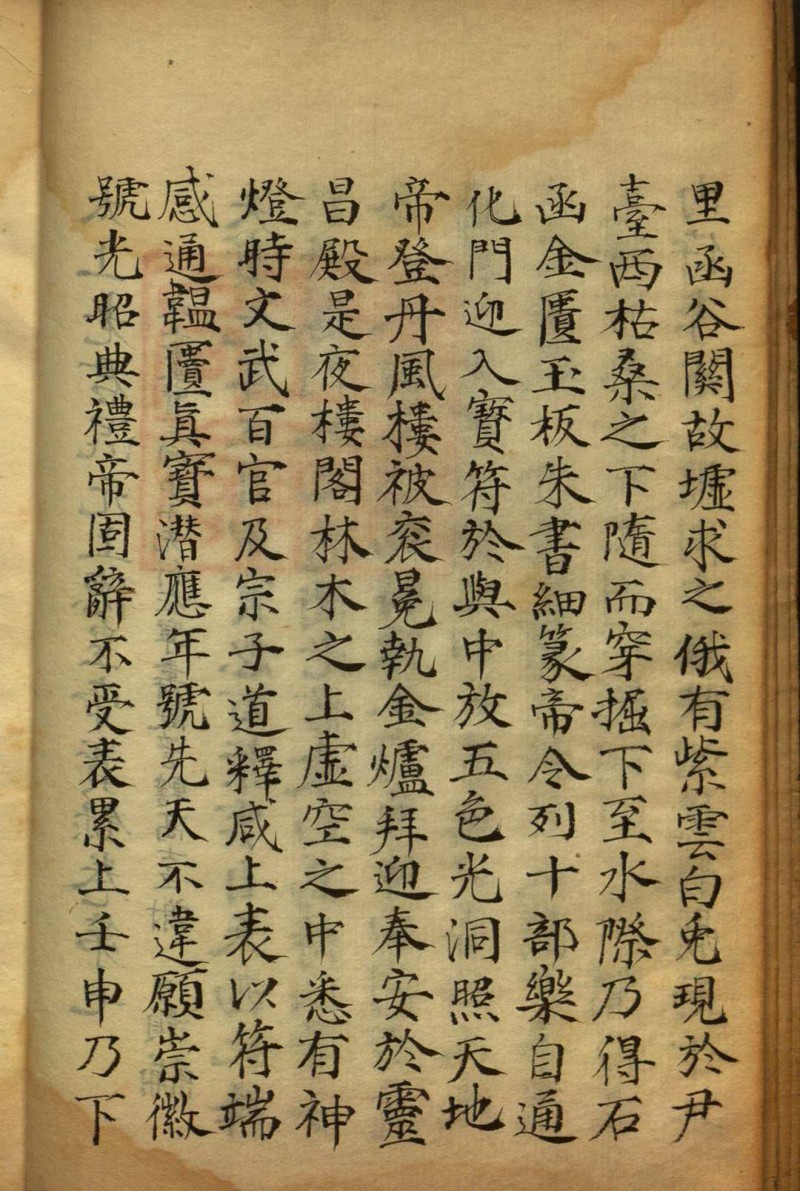 里函谷關故墟求之俄有紫雲白兎現於尹
臺西枯桑之下隨而穿掘下至水際乃得石
函金匱玉板朱書細篆帝令列十部樂自通
化門迎入寳符於輿中放五色光洞照天地
帝登丹風樓被衮冕執金爐拜迎奉安於靈
昌殿是夜樓閣林木之上虛空之中悉有神
燈時文武百官及宗子道釋咸上表以符端
感通韞匵眞寳潜應年號先天不違願崇徽
號光昭典禮帝固辭不受表累上壬申乃下